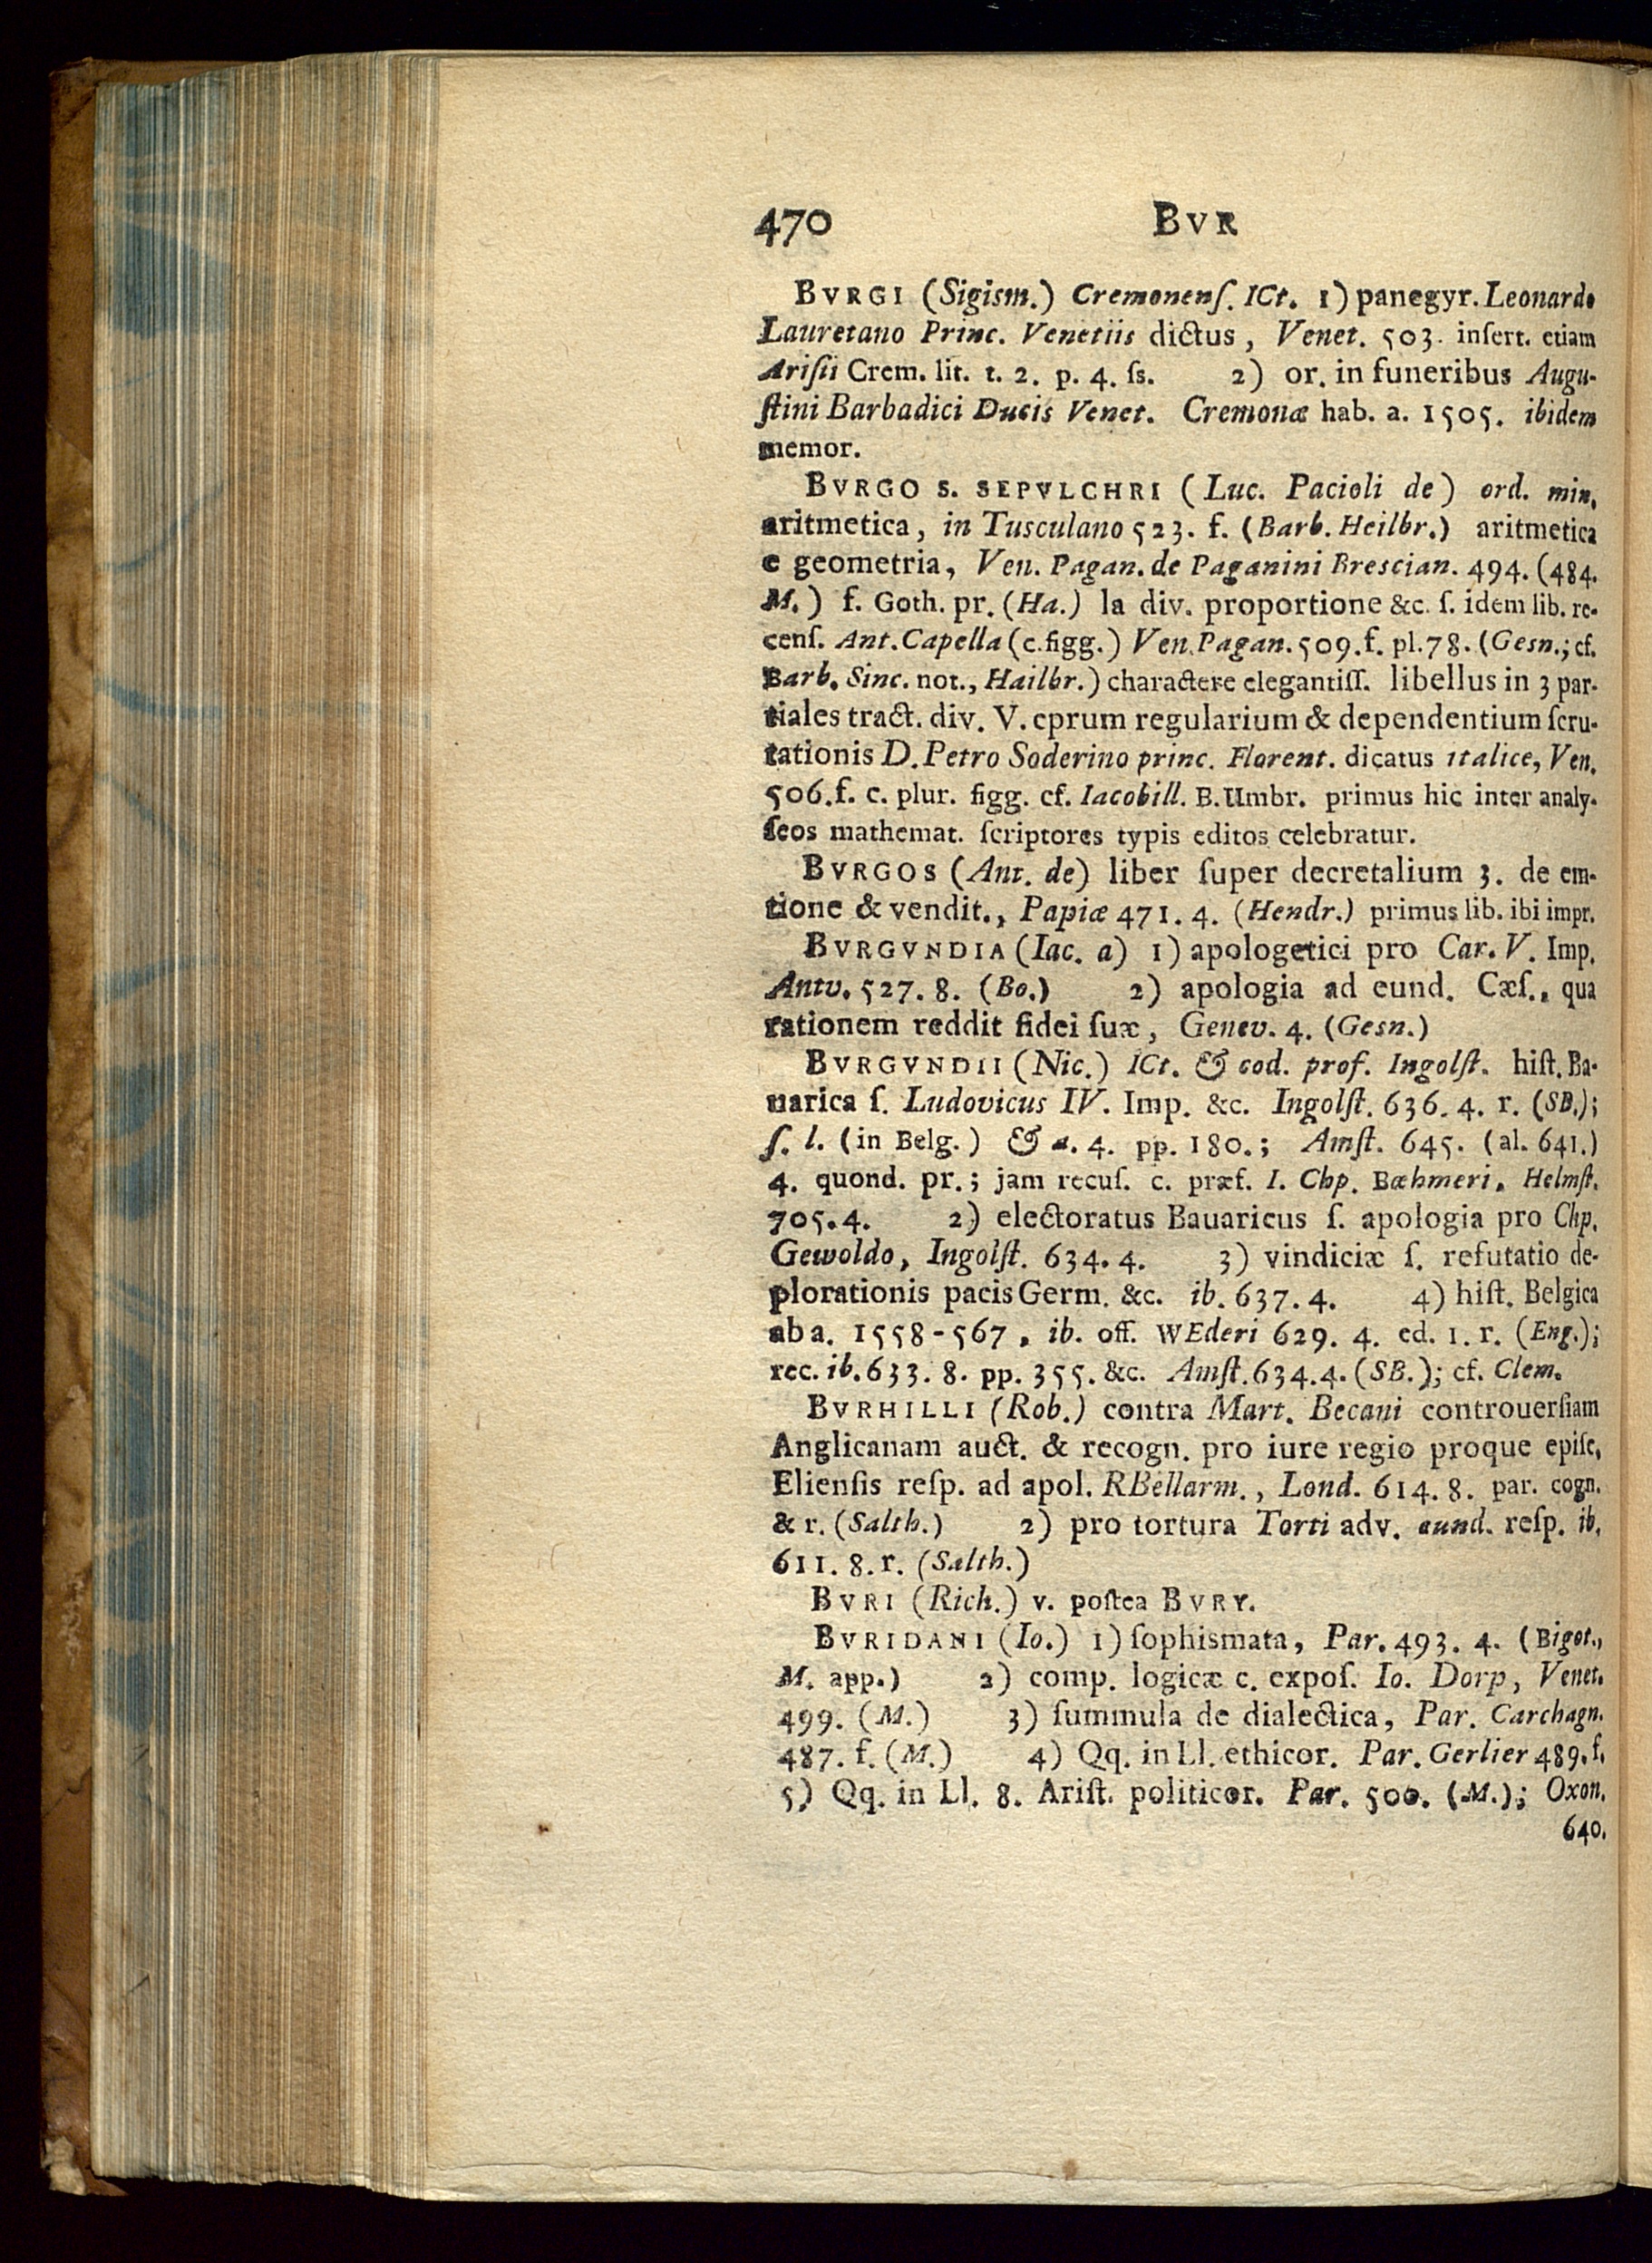 470 BVR
BVRGI (Sigism.) Cremonenſ. ICt. 1) panegyr. Leonardo
Lauretano Princ. Venetiis dictus, Venet. 503. inſert. etiam
Ariſii Crem. lit. t. 2. p. 4. ſs. 2) or. in funeribus Augu-
ſtini Barbadici Ducis Venet. Cremonæ hab. a. 1505. ibidem
memor.
BVRGO S. SEPVLCHRI (Luc. Pacioli de) ord. min.
aritmetica, in Tusculano 523. f. (Barb. Heilbr.) aritmetica
e geometria, Ven. Pagan. de Paganini Brescian. 494. (484.
M.) f. Goth. pr. (Ha.) la div. proportione &c. ſ. idem lib. re-
cenſ. Ant. Capella (c. figg.) Ven. Pagan. 509. f. pl. 78. (Gesn.; cf.
Barb. Sinc. not., Hailbr.) charactere elegantiſſ. libellus in 3 par-
tiales tract. div. V. cprum regularium & dependentium ſcru-
tationis D. Petro Soderino princ. Florent. dicatus italice, Ven.
506. f. c. plur. figg. cf. Iacobill. B. Umbr. primus hic inter analy-
ſeos mathemat. ſcriptores typis editos celebratur.
BVRGOS (Ant. de) liber ſuper decretalium 3. de em-
tione & vendit., Papiæ 471. 4. (Hendr.) primus lib. ibi impr.
BVRGVNDIA (Iac. a) 1) apologetici pro Car. V. Imp.
Antv. 527. 8. (Bo.) 2) apologia ad eund. Cæſ., qua
rationem reddit fidei ſuæ, Genev. 4. (Gesn.)
BVRGVNDII (Nic.) ICt. & cod. prof. Ingolſt. hiſt. Ba-
uarica ſ. Ludovicus IV. Imp. &c. Ingolſt. 636. 4. r. (SB.);
ſ. l. (in Belg.) & a. 4. pp. 180.; Amſt. 645. (al. 641.)
4. quond. pr.; jam recuſ. c. præf. I. Chp. Bœhmeri, Helmſt.
705. 4. 2) electoratus Bauaricus ſ. apologia pro Chp.
Gewoldo, Ingolſt. 634. 4. 3) vindiciæ ſ. refutatio de-
plorationis pacis Germ. &c. ib. 637. 4. 4) hiſt. Belgica
ab a. 1558-567, ib. off. WEderi 629. 4. ed. 1. r. (Eng.);
rec. ib. 633. 8. pp. 355. &c. Amſt. 634. 4. (SB.); cf. Clem.
BVRHILLI (Rob.) contra Mart. Becani controuerſiam
Anglicanam auct. & recogn. pro iure regio proque epiſc.
Elienſis reſp. ad apol. RBellarm., Lond. 614. 8. par. cogn.
& r. (Salth.) 2) pro tortura Torti adv. eund. reſp. ib.
611. 8. r. (Salth.)
BVRI (Rich.) v. poſtea BVRY.
BVRIDANI (Io.) 1) ſophismata, Par. 493. 4. (Bigot.,
M. app.) 2) comp. logicæ c. expoſ. Io. Dorp, Venet.
499. (M.) 3) ſummula de dialectica, Par. Carchagn.
487. f. (M.) 4) Qq. in Ll. ethicor. Par. Gerlier 489. f.
5) Qq. in Ll. 8. Ariſt. politicor. Par. 500. (M.); Oxon.
640.